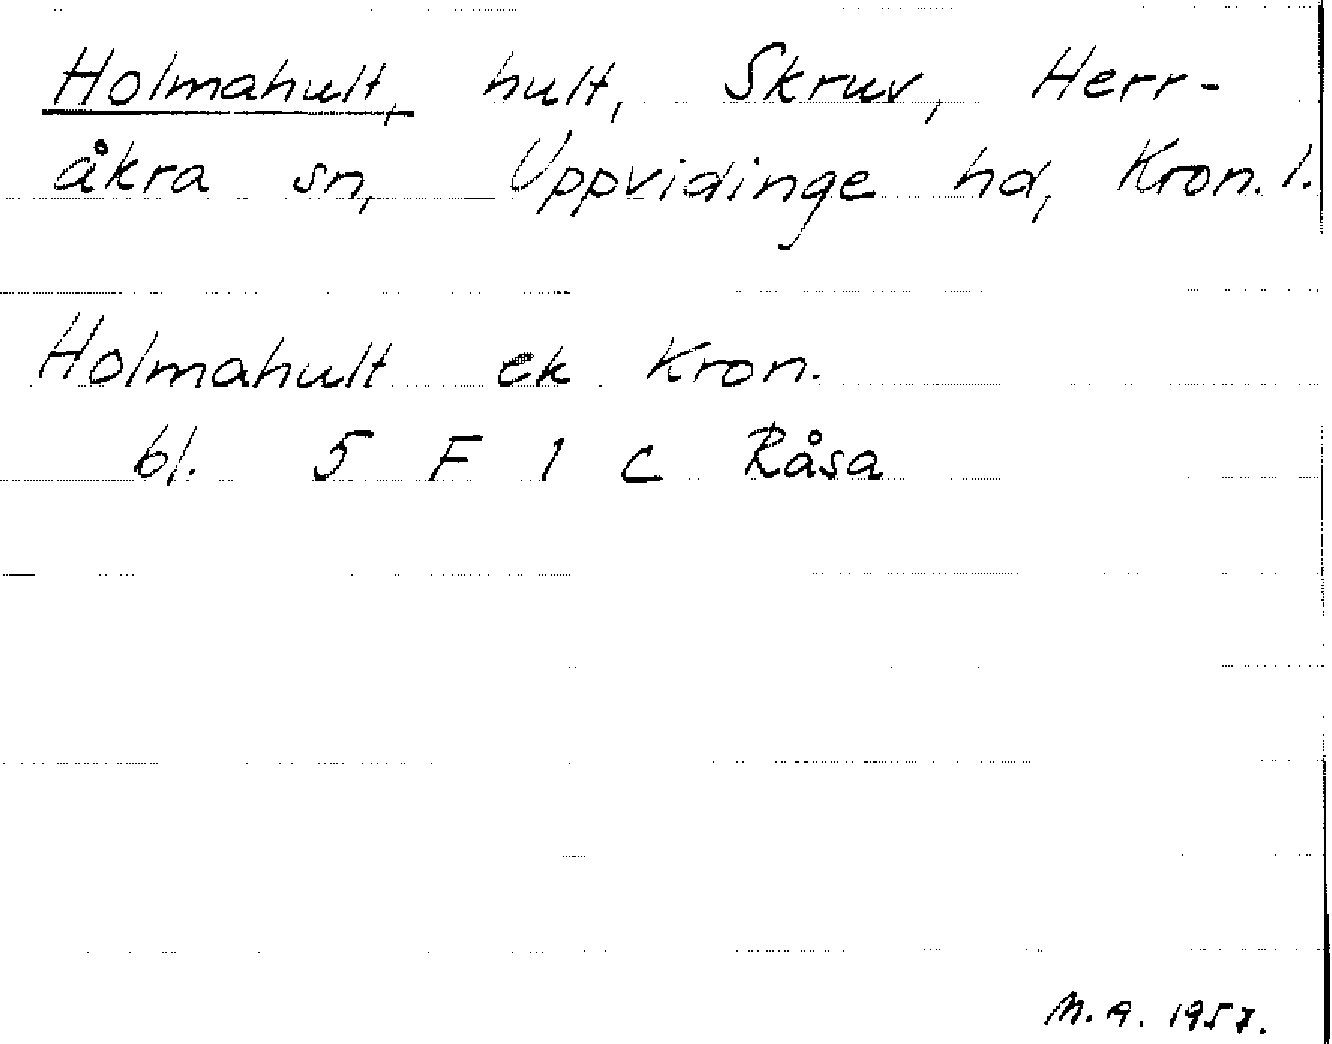 Holmahult, hult, Skruv, Herr-
åkra sn, Uppvidinge hd, Kron. l.
Holmahult ek Kron.
bl. 5 F 1 c Råsa
M.A. 1957.